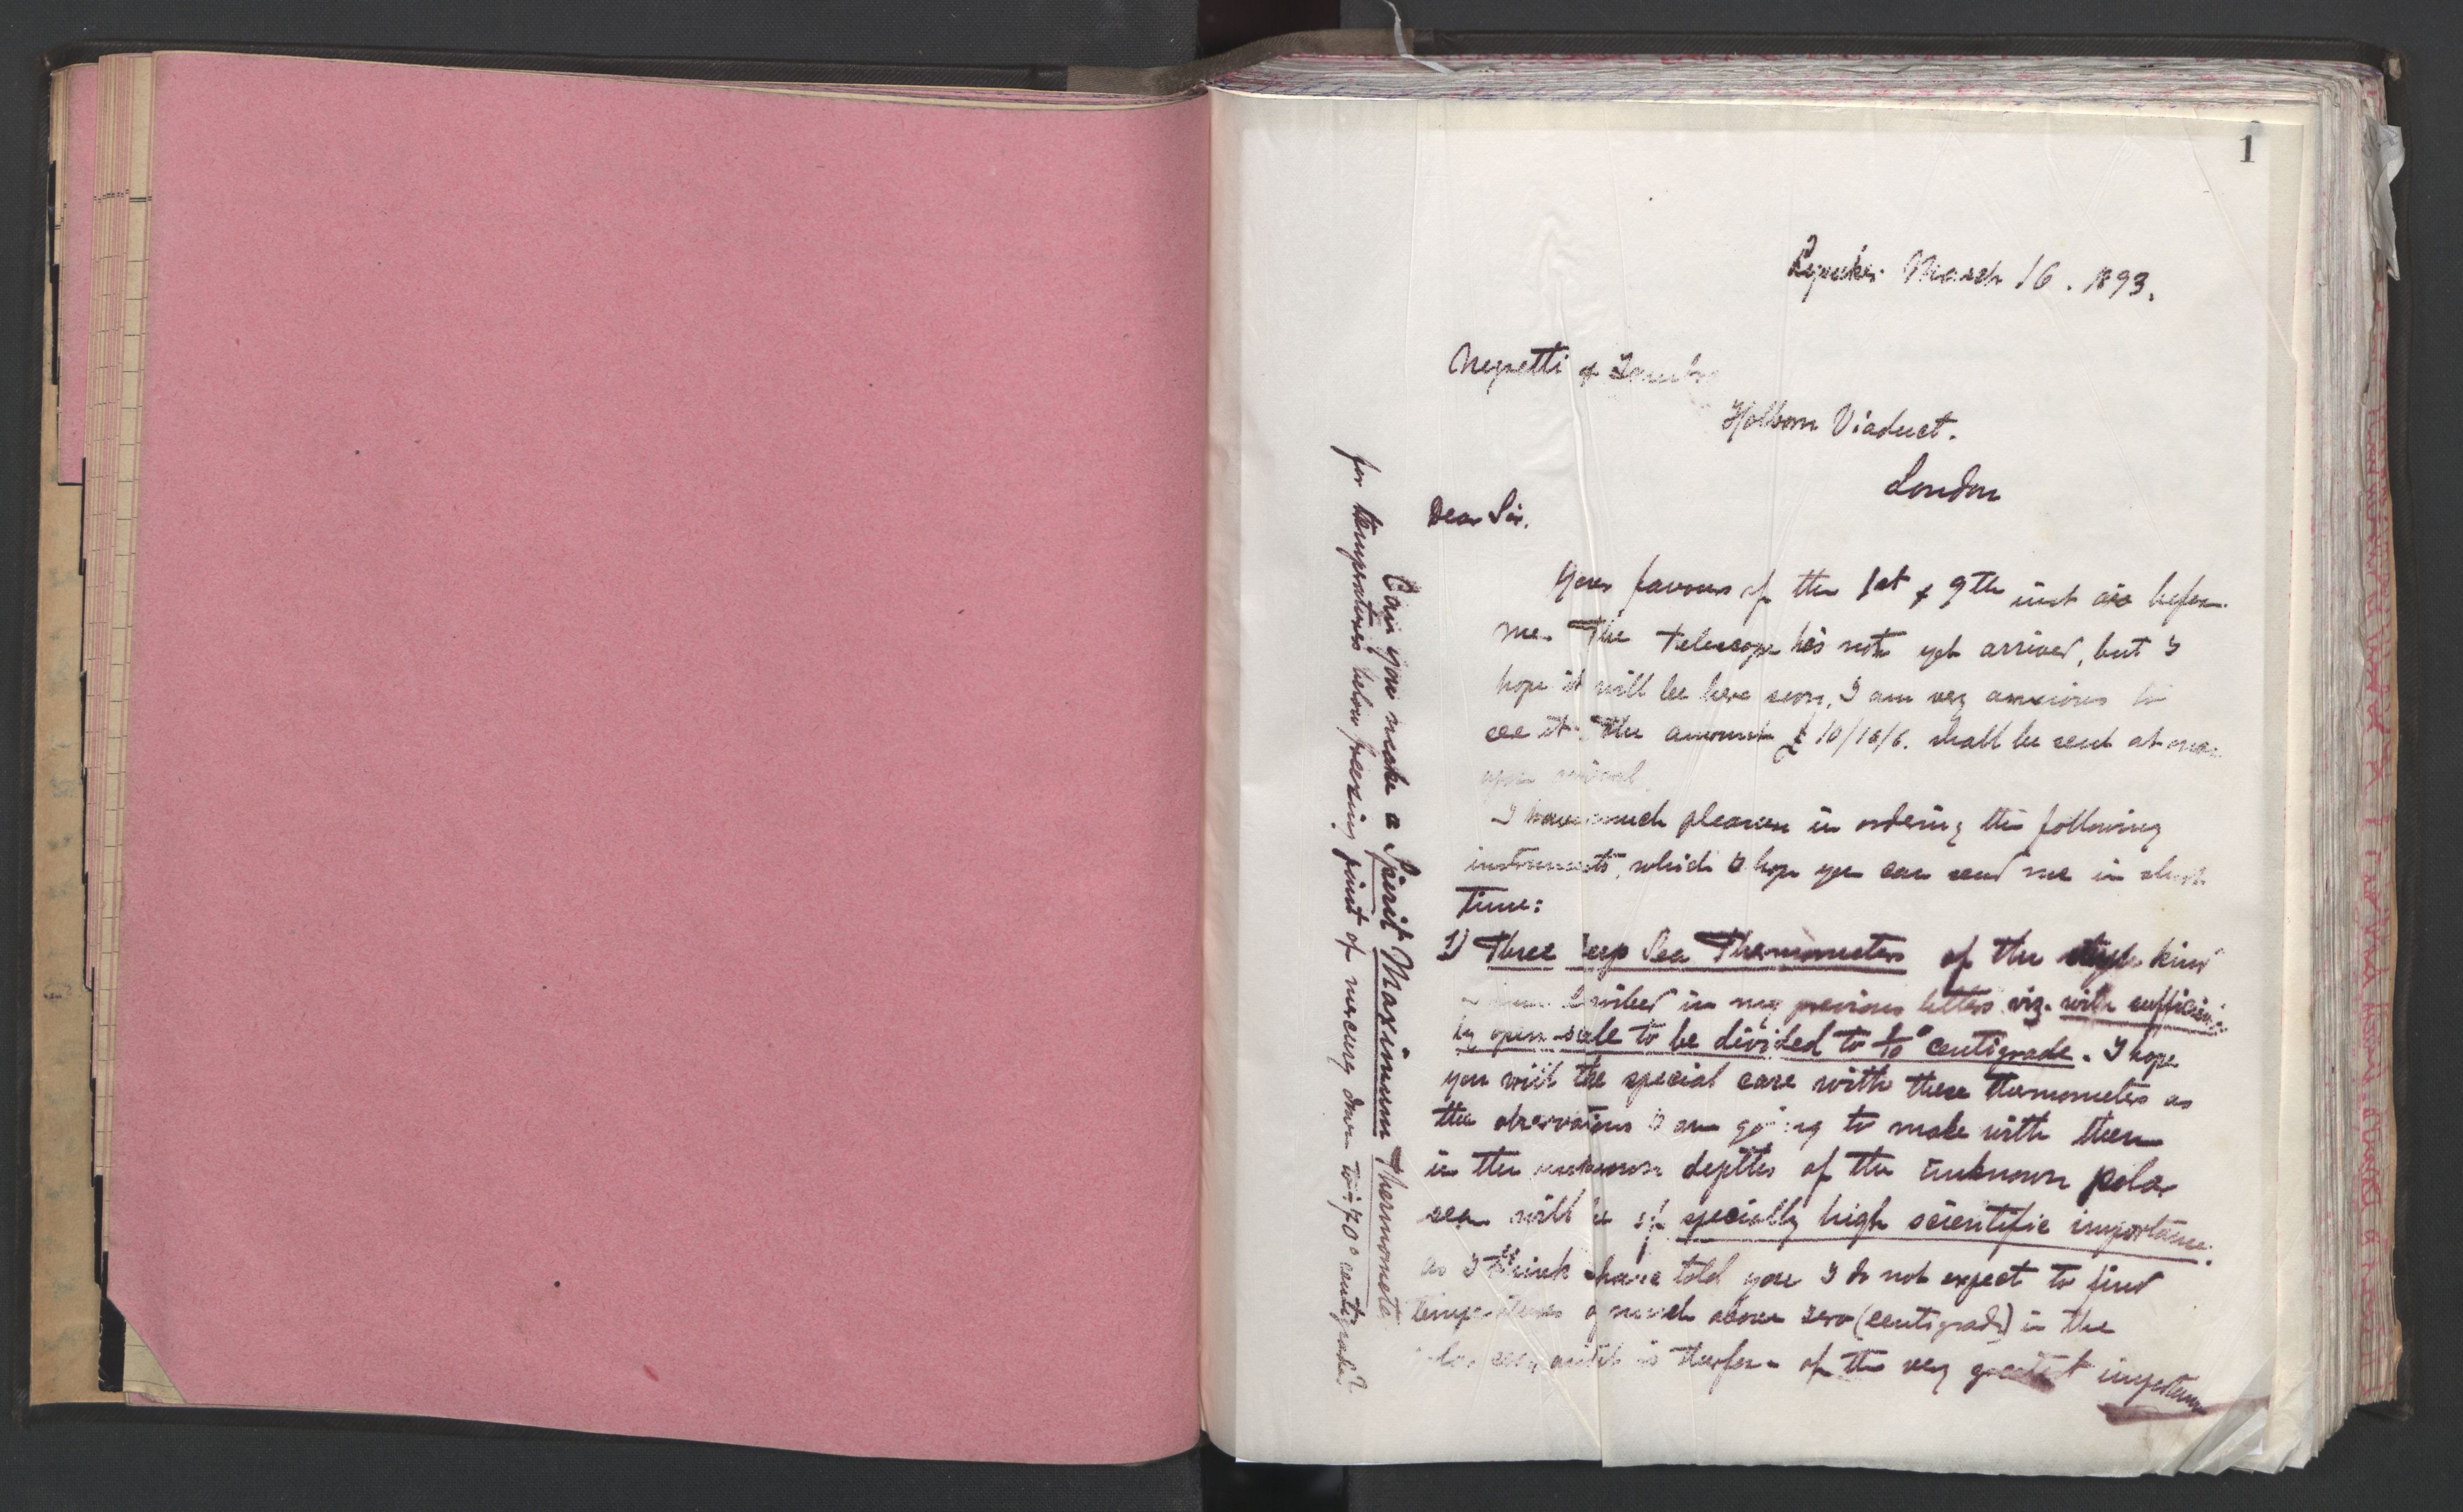 1
Lysaker March 16. 1893.
Negretti & Zambra
Holborn Viaduct.
London
Dear Sir.
Your favours of the 1st & 9th inst are before
me. The telescope has not yet arrived, but I
hope it will be here soon, I am very anxious to
see it. The amount £ 10/10/6. shall be sent at once
upon arrival.
I have much pleasure in ordering the following
instruments, which I hope you can send me in short
time:
1) Three Deep Sea Thermometers of the kind
described in my previous letters viz. with sufficient-
ly open scale to be divided to 1/10° centigrade. I hope
you will take special care with these thermometers as
the observations I am going to make with them
in the unknown depths of the unknown polar
sea will be of specially high scientific importance.
as I think I have told you I do not expect to find
temperatures of much above zero (centigrade) in the
polar sea, and it is therefore of the very greatest importance
Can you make a Spirit Maximum Thermometer
for temperatures below freezing point of mercury down to ÷ 70° centigrade?